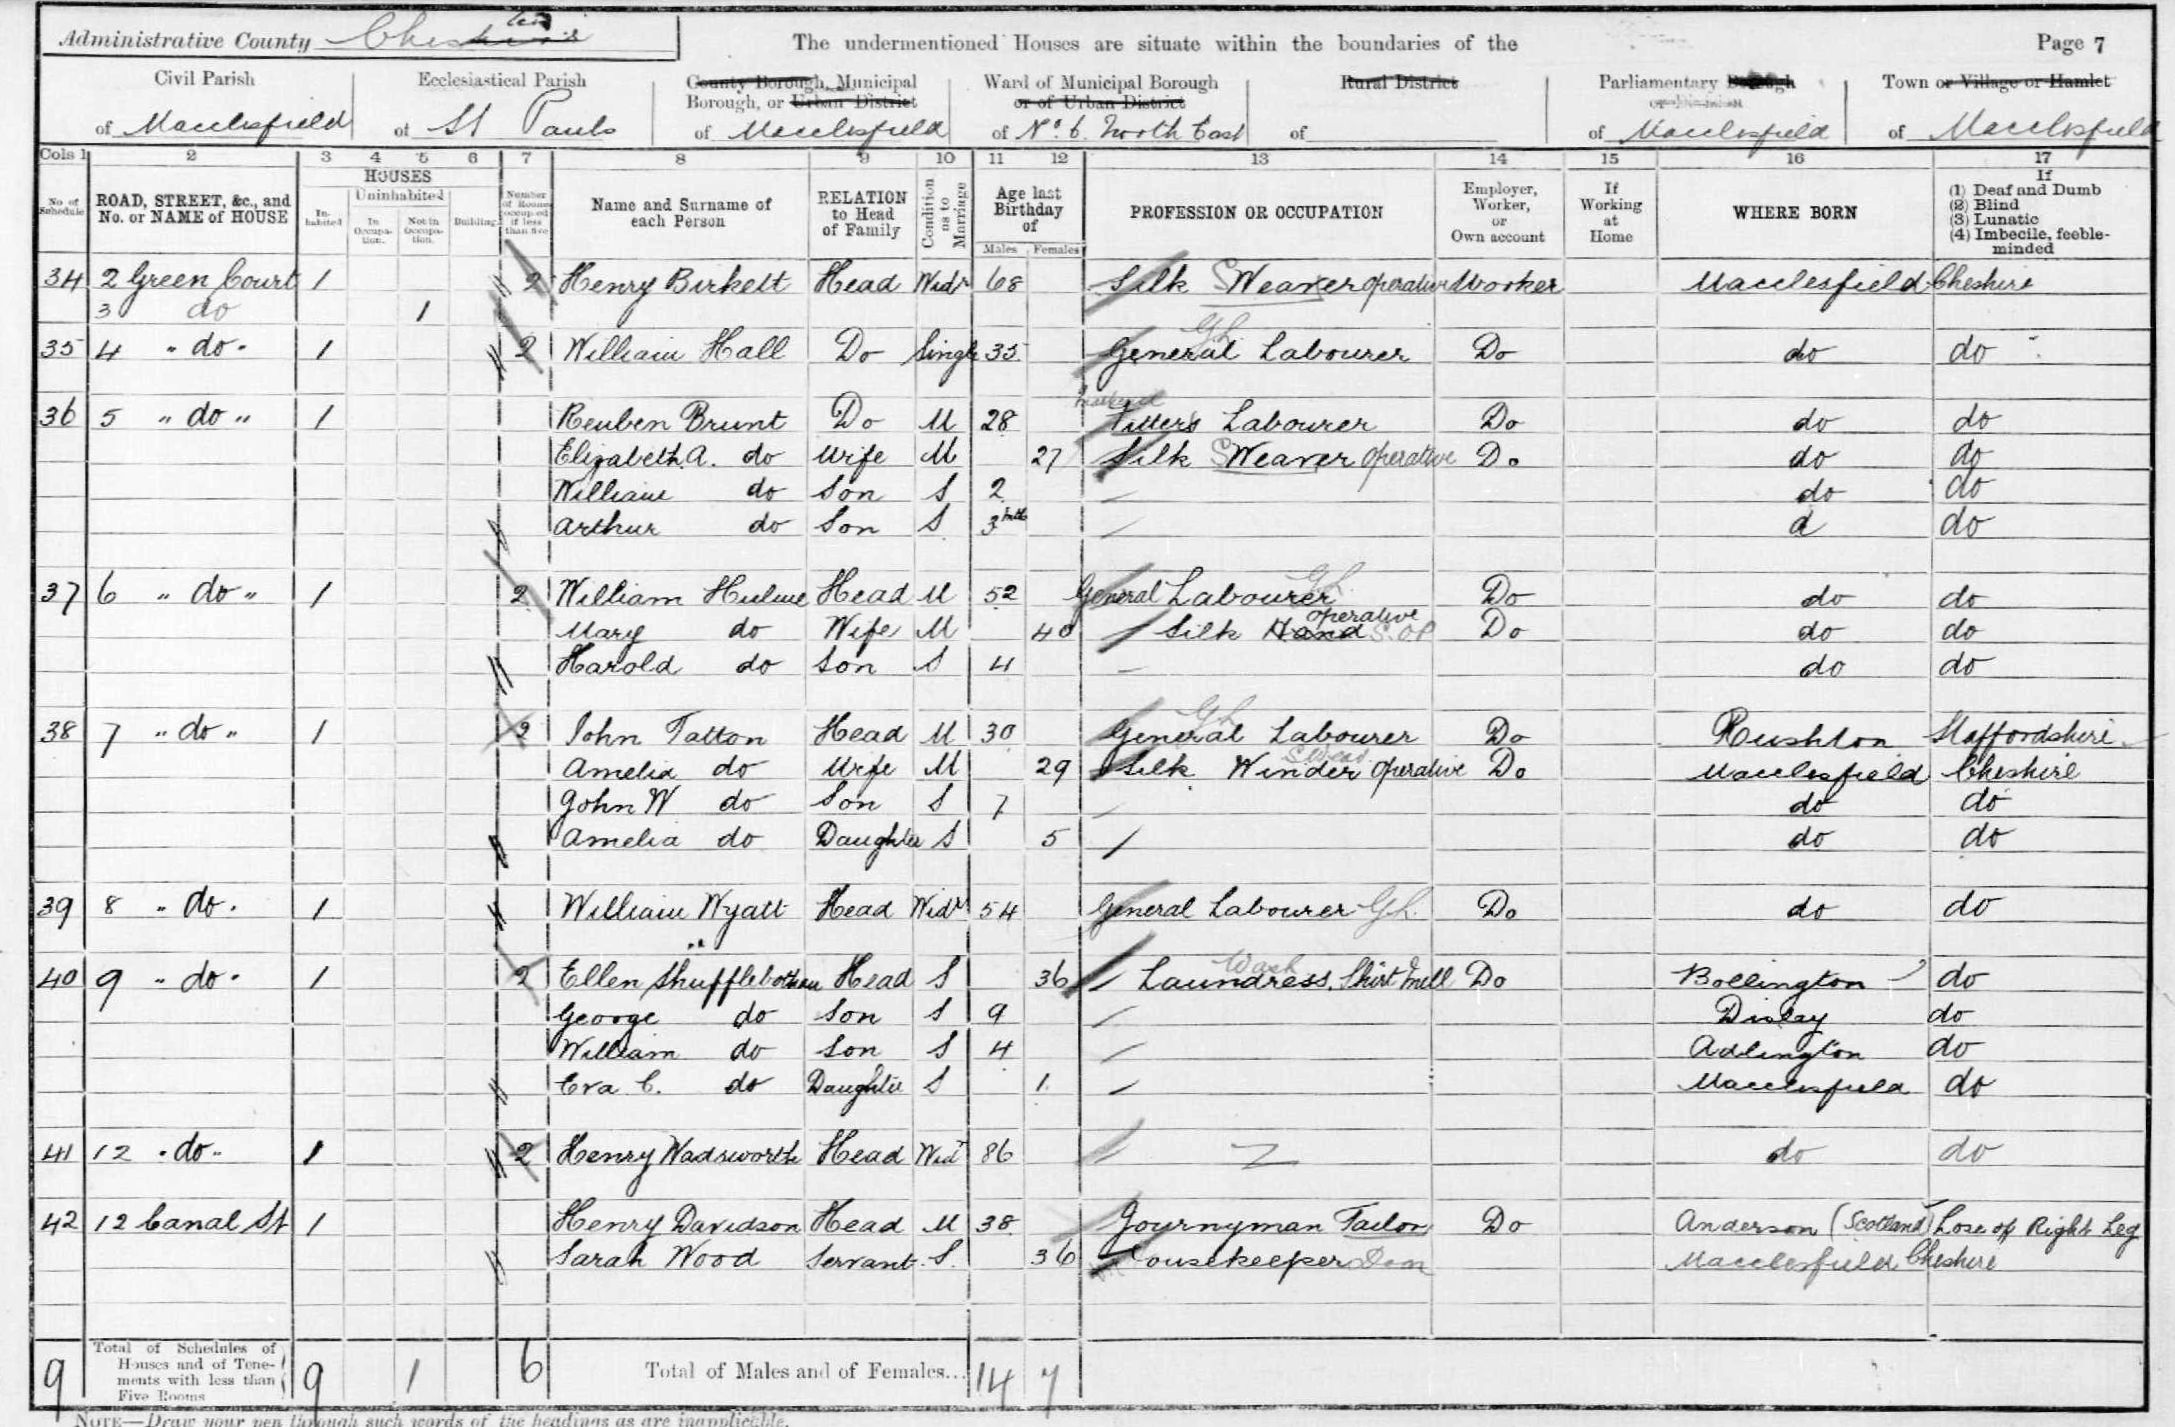 Administrative County Cheshire
The undermentioned Houses are situate within the boundaries of the
Page 7
Civil Parish of Macclesfield
Ecclesiastical Parish of St Pauls
County Borough, Municipal Borough, or Urban District of Macclesfield
Ward of Municipal Borough or of Urban District of No. 6. North East
Rural District of
Parliamentary Borough of Macclesfield
Town or Village or Hamlet of Macclesfield
Cols 1 2 3 4 5 6 7 8 9 10 11 12 13 14 15 16 17
No. of Schedule
ROAD, STREET, &c., and No. or NAME of HOUSE
HOUSES
Inhabited
Uninhabited
In Occupation.
Not in Occupation.
Building
Number of Rooms occupied if less than five
Name and Surname of each Person
RELATION to Head of Family
Condition as to Marriage
Age last Birthday of
Males Females
PROFESSION OR OCCUPATION
Employer, Worker, or Own account
If Working at Home
WHERE BORN
If
(1) Deaf and Dumb
(2) Blind
(3) Lunatic
(4) Imbecile, feeble-minded
34 2 Green Court 1 2 Henry Birkett Head Widr 68 Silk S Weaver operative Worker Macclesfield Cheshire
3 do 1
35 4 " do " 1 2 William Hall Do Single 35 General Labourer GL Do do do
36 5 " do " 1 Reuben Brunt Do M 28 Fitters Labourer Do do do
Elizabeth A. do Wife M 27 Silk S Weaver operative Do do do
William do Son S 2 do do
Arthur do Son S 3 mths d do
37 6 " do " 1 2 William Hulme Head M 52 General Labourer GL Do do do
Mary do Wife M 40 Silk Hand operative S.OP Do do do
Harold do Son S 4 do do
38 7 " do " 1 2 John Tatton Head M 30 General Labourer GL Do Rushton Staffordshire
Amelia do Wife M 29 Silk Winder operative Do Macclesfield Cheshire
John W do Son S 7 do do
Amelia do Daughter S 5 do do
39 8 " do " 1 William Wyatt Head Widr 54 General Labourer GL. Do do do
40 9 " do " 1 2 Ellen Shufflebotham Head S 36 Laundress, Shirt Mill Wash Do Bollington do
George do Son S 9 Disley do
William do Son S 4 Adlington do
Eva C. do Daughter S 1 Macclesfield do
41 12 " do " 1 2 Henry Wadsworth Head Widr 86 do do
42 12 Canal St 1 Henry Davidson Head M 38 Journyman Tailor Do Anderson (Scotland) Lose of Right Leg
Sarah Wood Servant S. 36 Housekeeper Dom Macclesfield Cheshire
9 Total of Schedules of Houses and of Tenements with less than Five Rooms 9 1 6 Total of Males and of Females... 14 7
NOTE—Draw your pen through such words of the headings as are inapplicable.